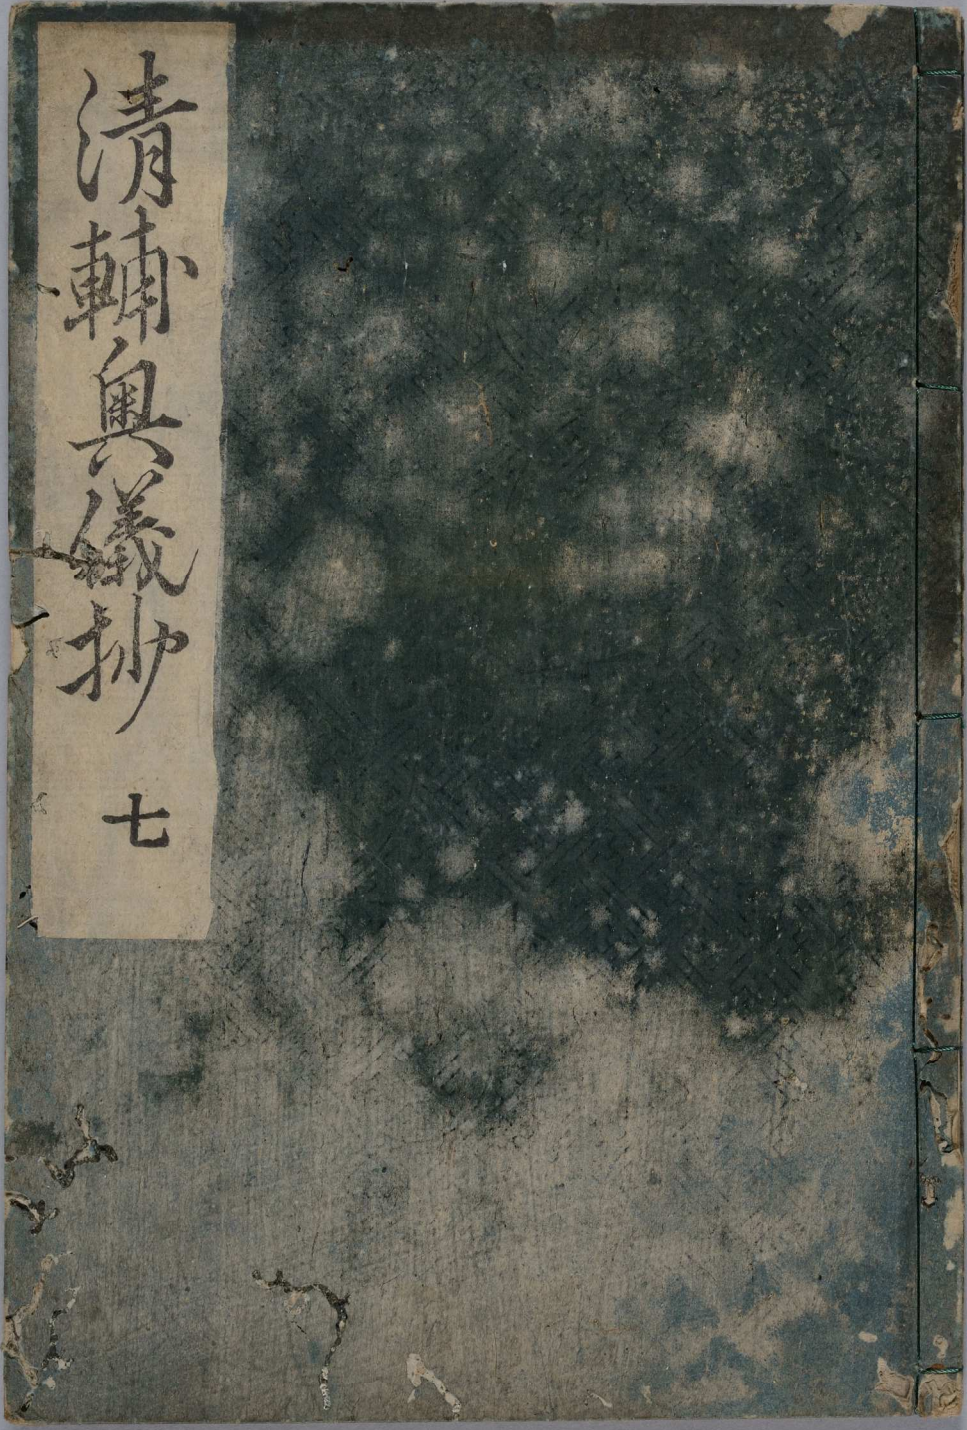 清輔奥儀抄 七